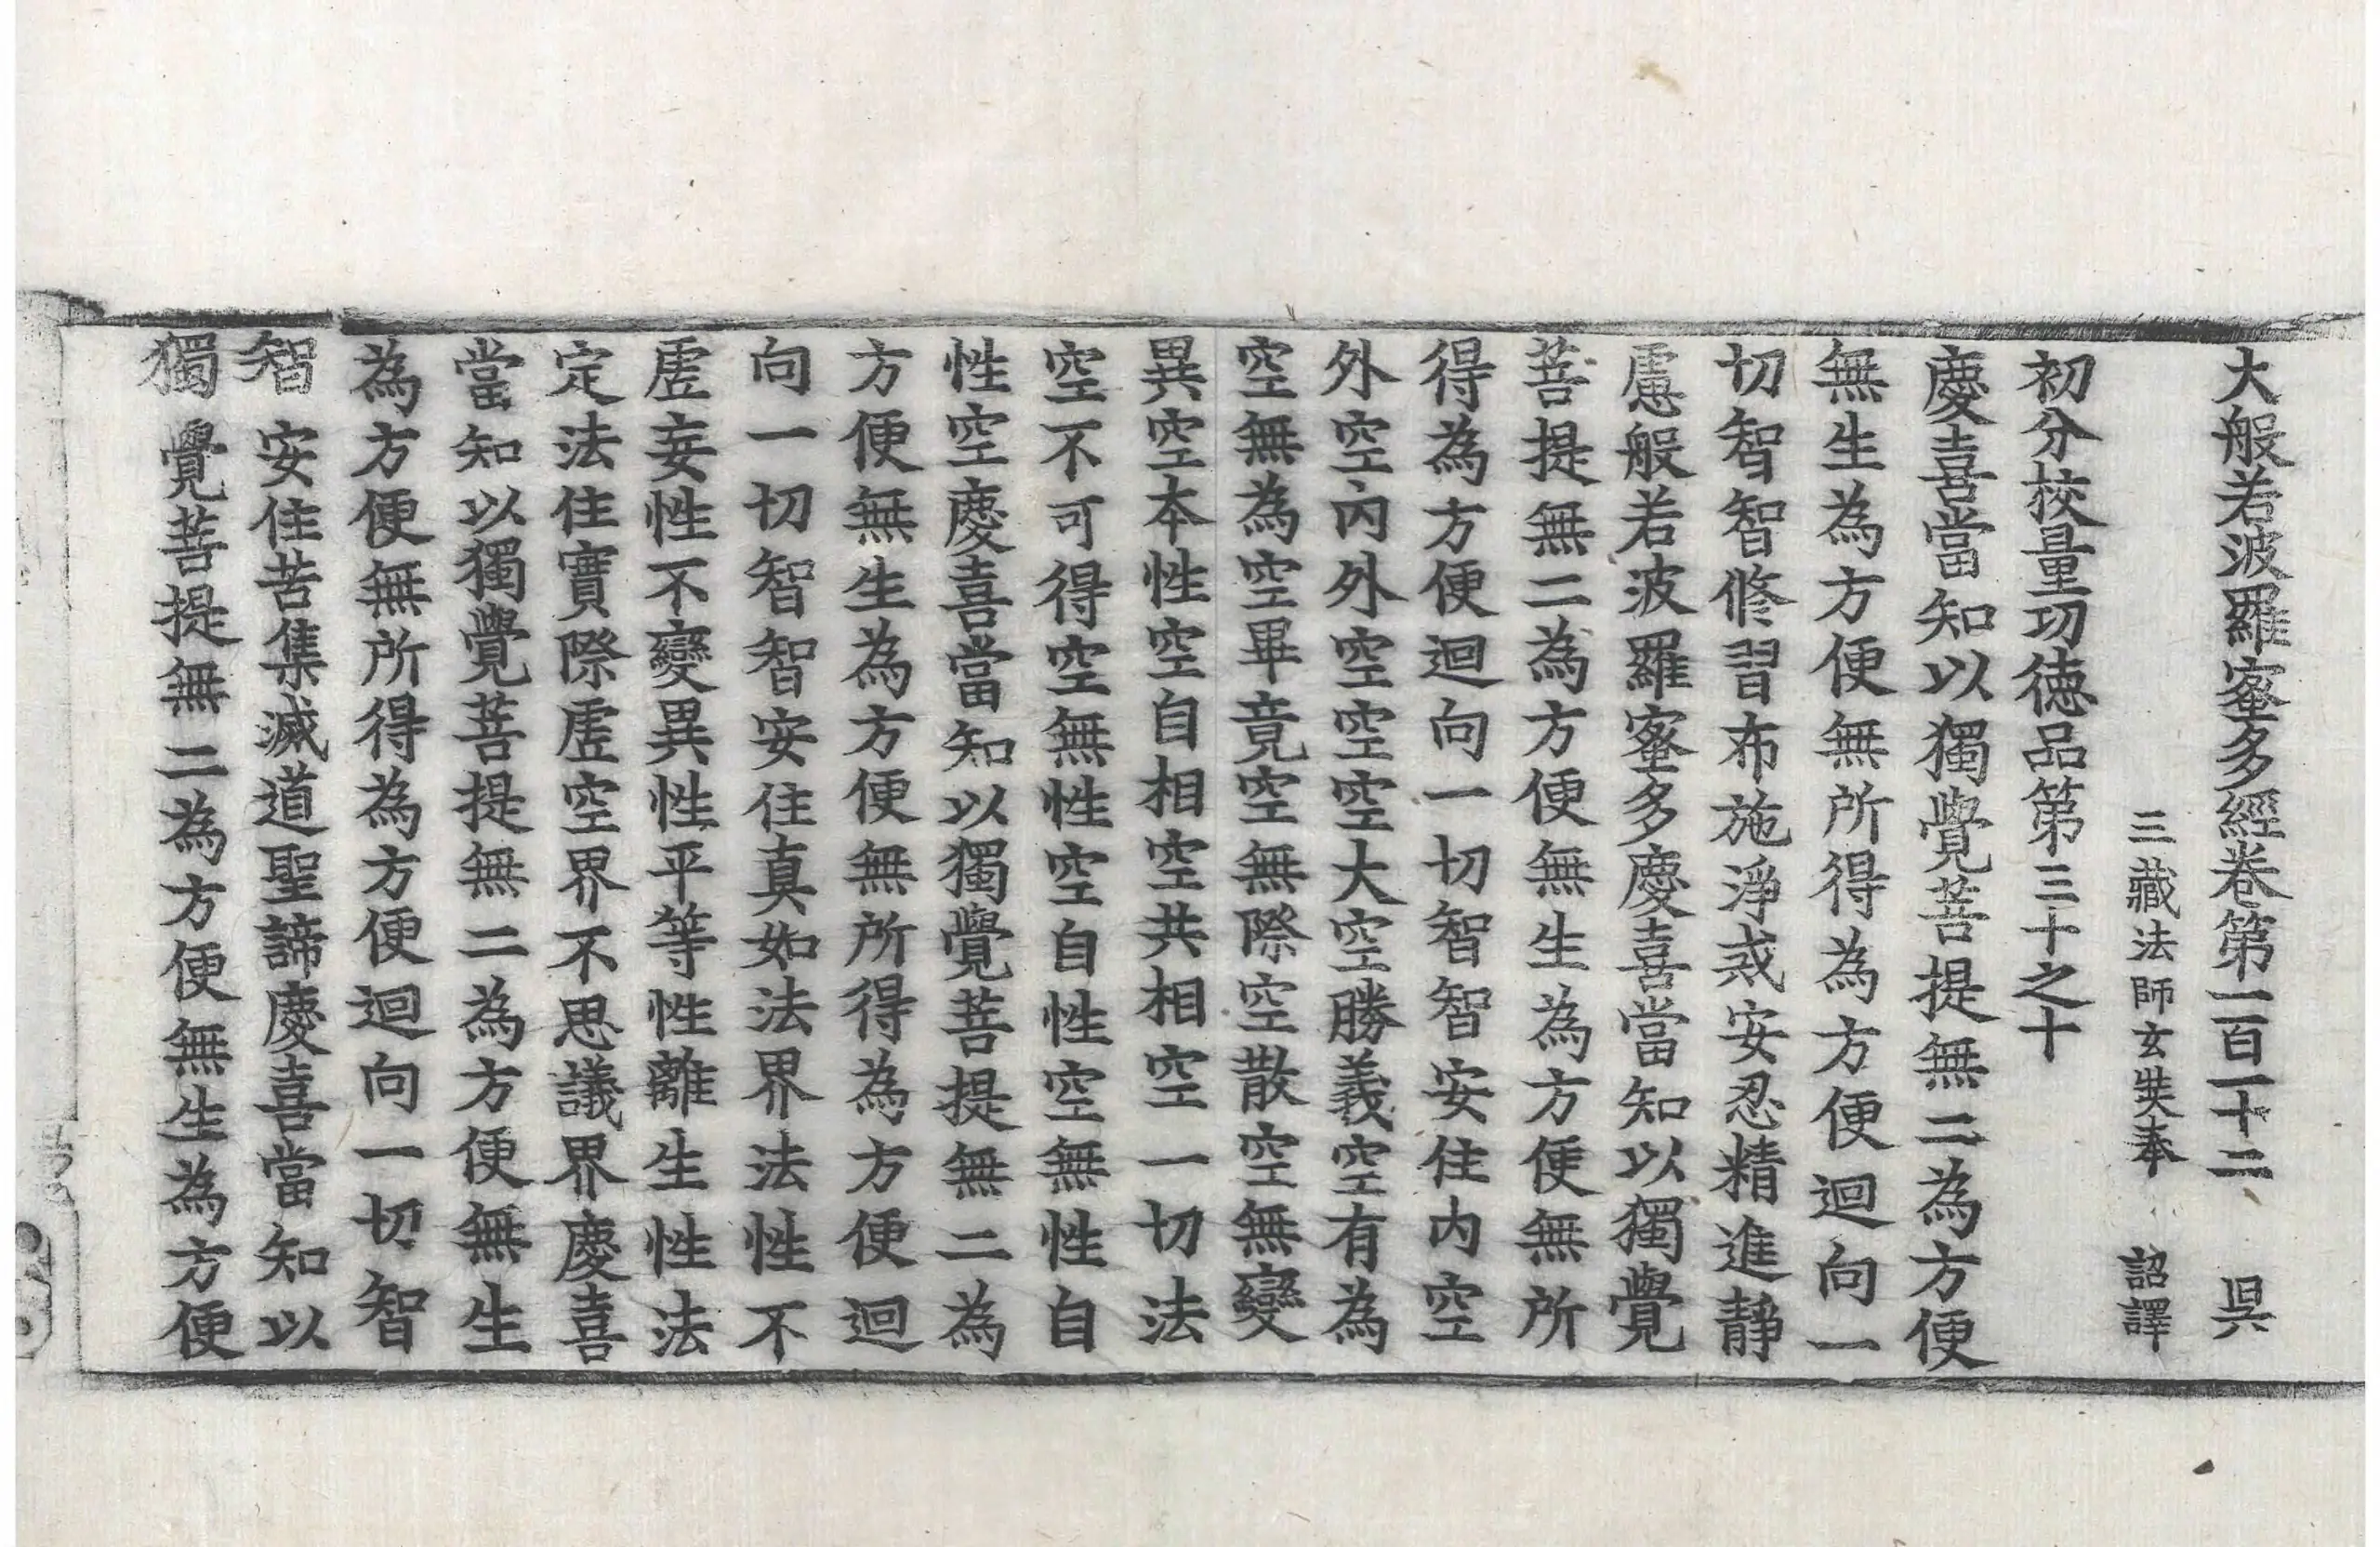 大般若波羅蜜多經卷第一百一十二 㫷
三藏法師玄奘奉 詔譯
初分校量功德品第三十之十
慶喜當知以獨覺菩提無二為方便
無生為方便無所得為方便迴向一
切智智修習布施淨戒安忍精進靜
慮般若波羅蜜多慶喜當知以獨覺
菩提無二為方便無生為方便無所
得為方便迴向一切智智安住內空
外空內外空空空大空勝義空有為
空無為空畢竟空無際空散空無變
異空本性空自相空共相空一切法
空不可得空無性空自性空無性自
性空慶喜當知以獨覺菩提無二為
方便無生為方便無所得為方便迴
向一切智智安住真如法界法性不
虛妄性不變異性平等性離生性法
定法住實際虛空界不思議界慶喜
當知以獨覺菩提無二為方便無生
為方便無所得為方便迴向一切智
智安住苦集滅道聖諦慶喜當知以
獨覺菩提無二為方便無生為方便